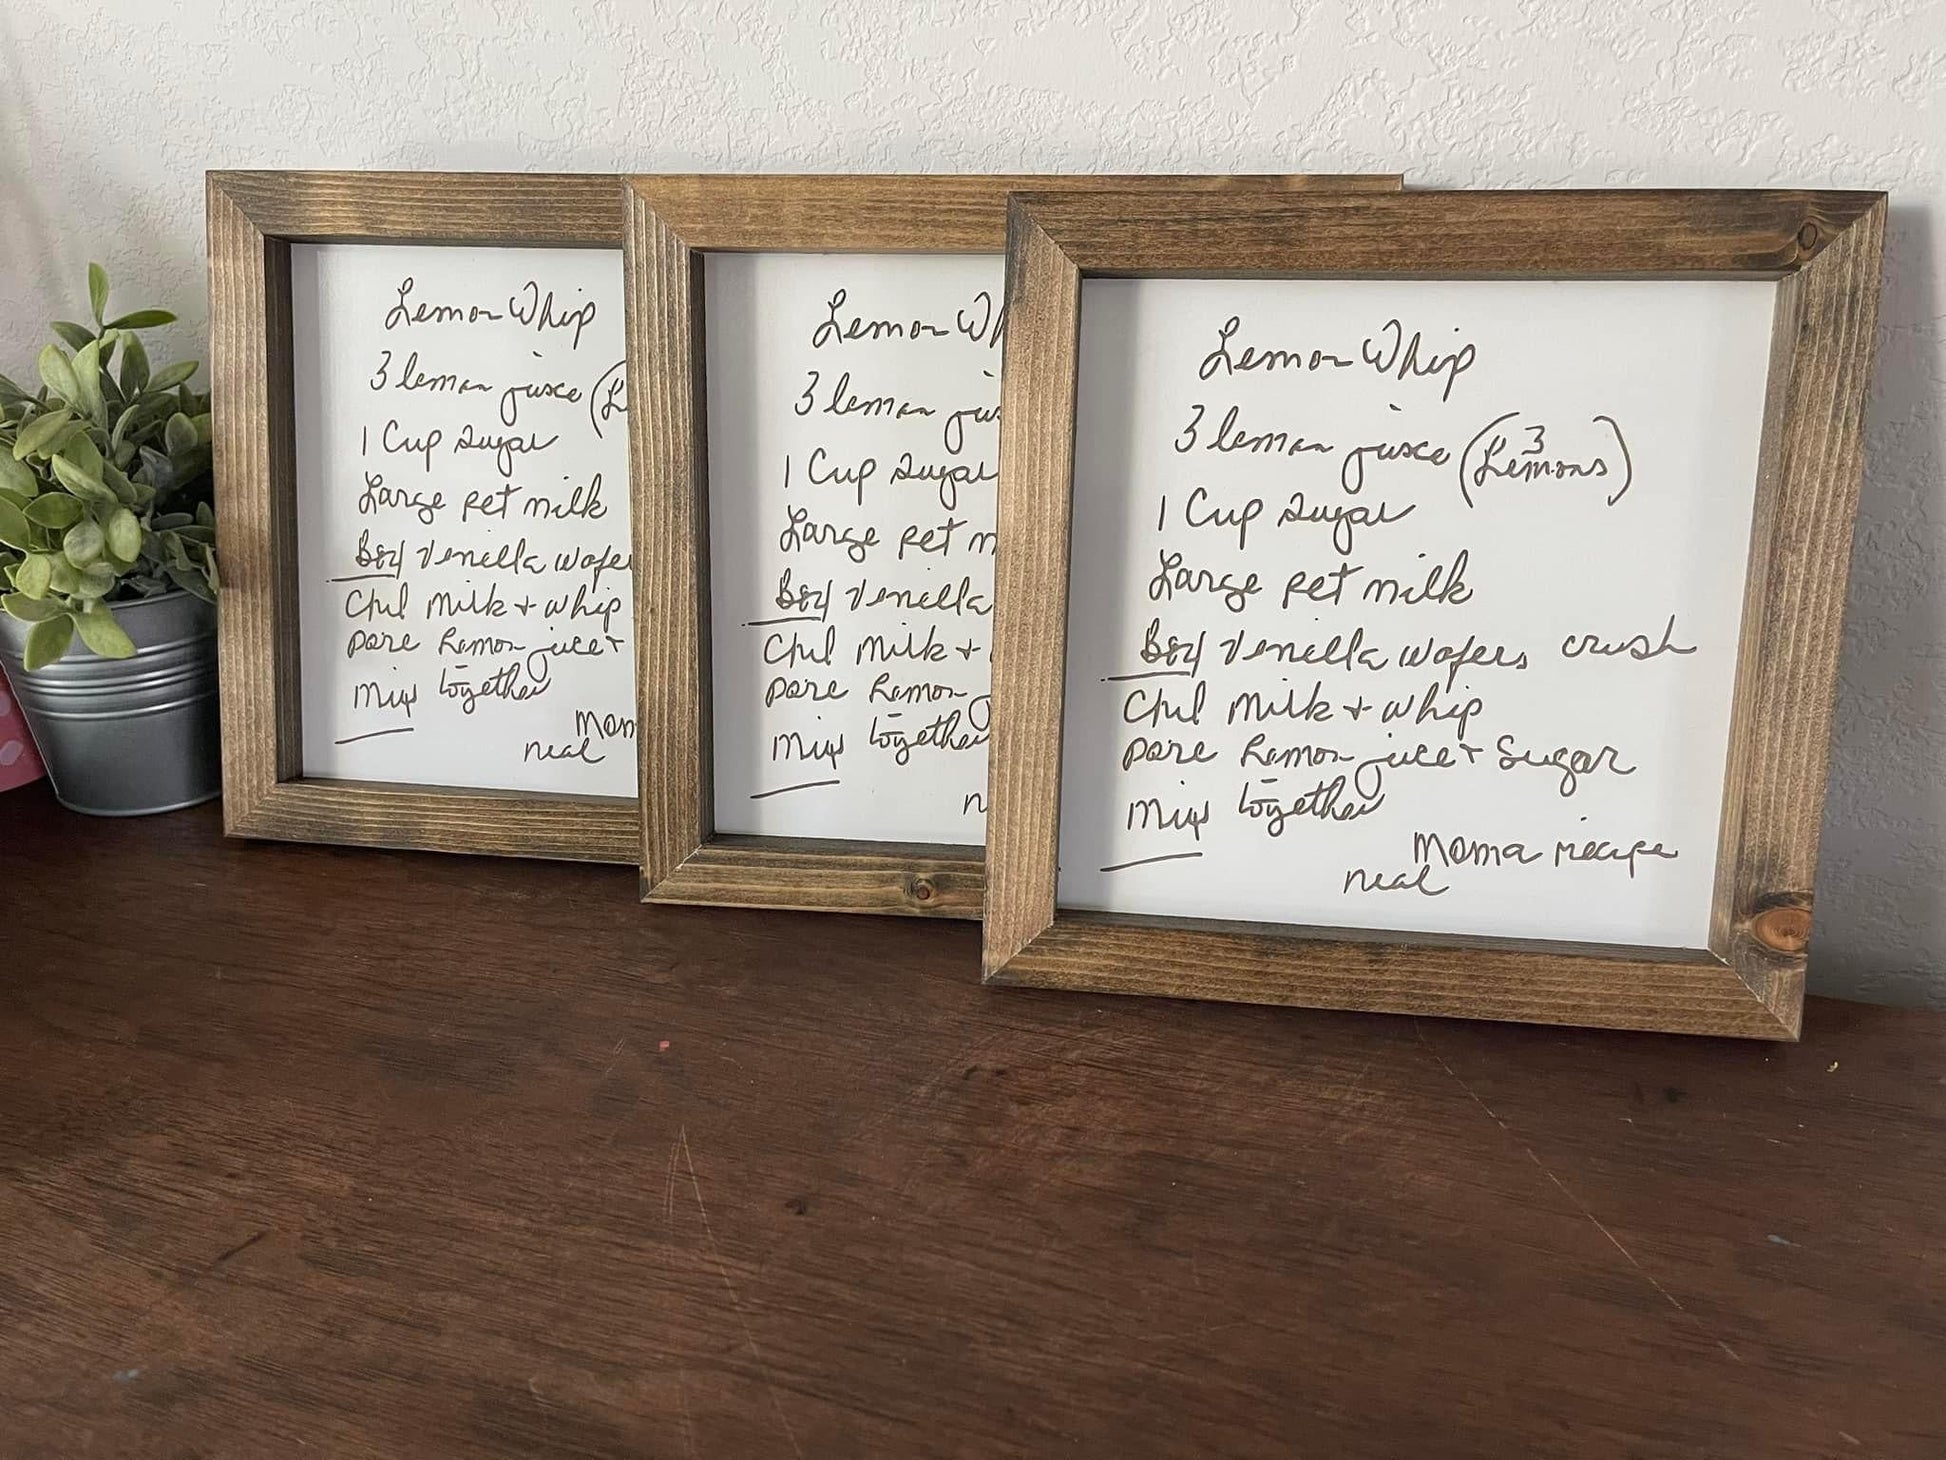 Lemon Whip
3 lemon juice (L
1 Cup sugar
Large pet milk
Box Venella wafe
Chil milk + whip
pore Lemon juice +
Mix together
Mom
neal
Lemon Wh
3 lemon jui
1 Cup sugar
Large pet m
Box Venella
Chil milk +
pore Lemon
Mix together
n
Lemon Whip
3 lemon juice (3 Lemons)
1 Cup sugar
Large pet milk
Box Venella wafers crush
Chil milk + whip
pore Lemon juice + Sugar
Mix together
Moma recipe
neal